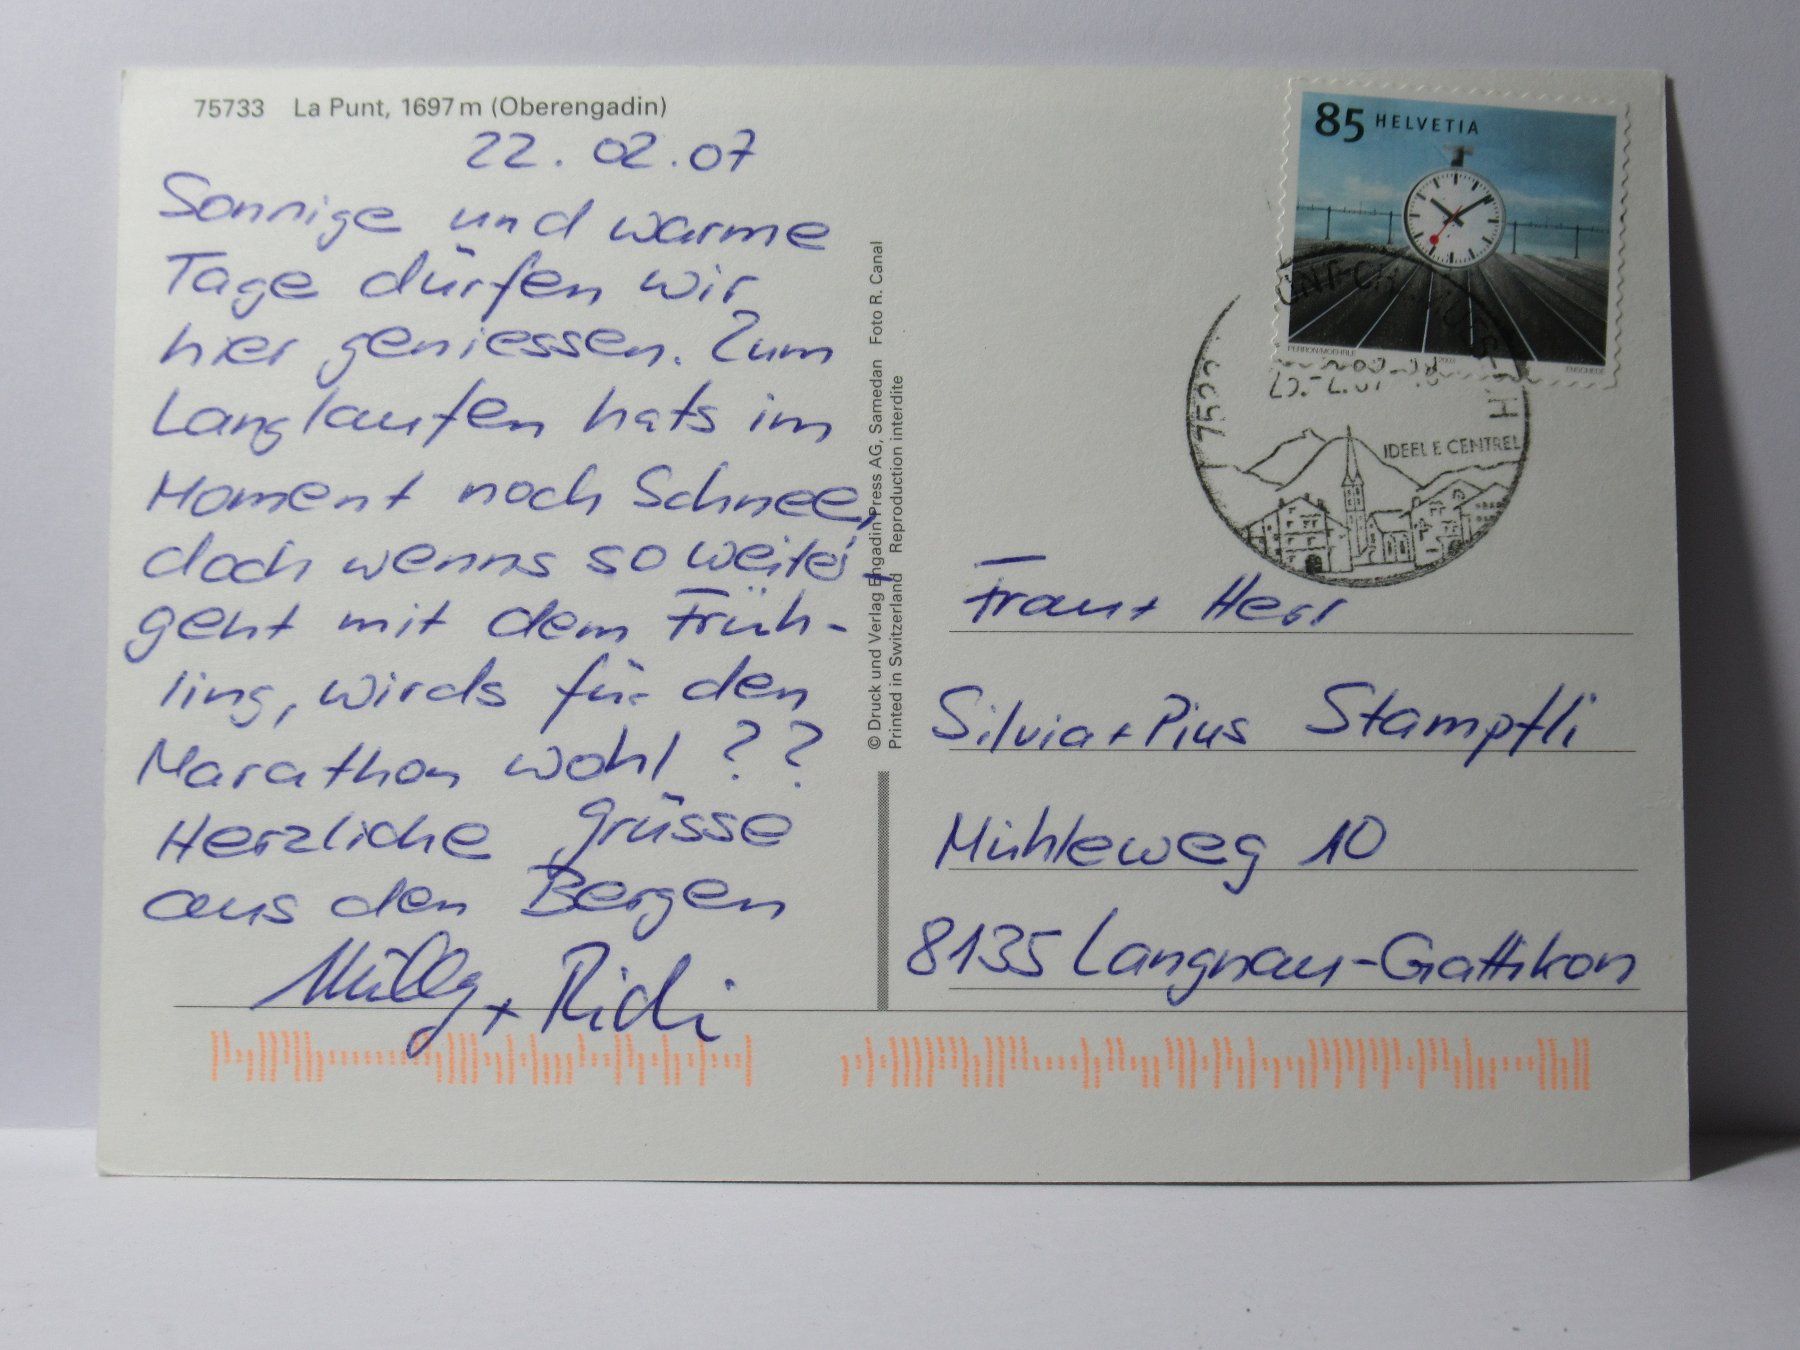 75733 La Punt, 1697 m (Oberengadin)
22.02.07
Sonnige und warme
Tage dürfen wir
hier geniessen. Zum
Langlaufen hats im
Moment noch Schnee,
doch wenns so weiter
geht mit dem Früh-
ling, wirds für den
Marathon wohl ??
Herzliche Grüsse
aus den Bergen
+ Ridi
© Druck und Verlag Engadin Press AG, Samedan Foto R. Canal
Printed in Switzerland Reproduction interdite
85 HELVETIA
PERRON/MOEHRLE 2003 ENSCHEDE
IDEEL E CENTREL
Frau + Herr
Silvia + Pius Stampfli
Mühleweg 10
8135 Langnau-Gattikon